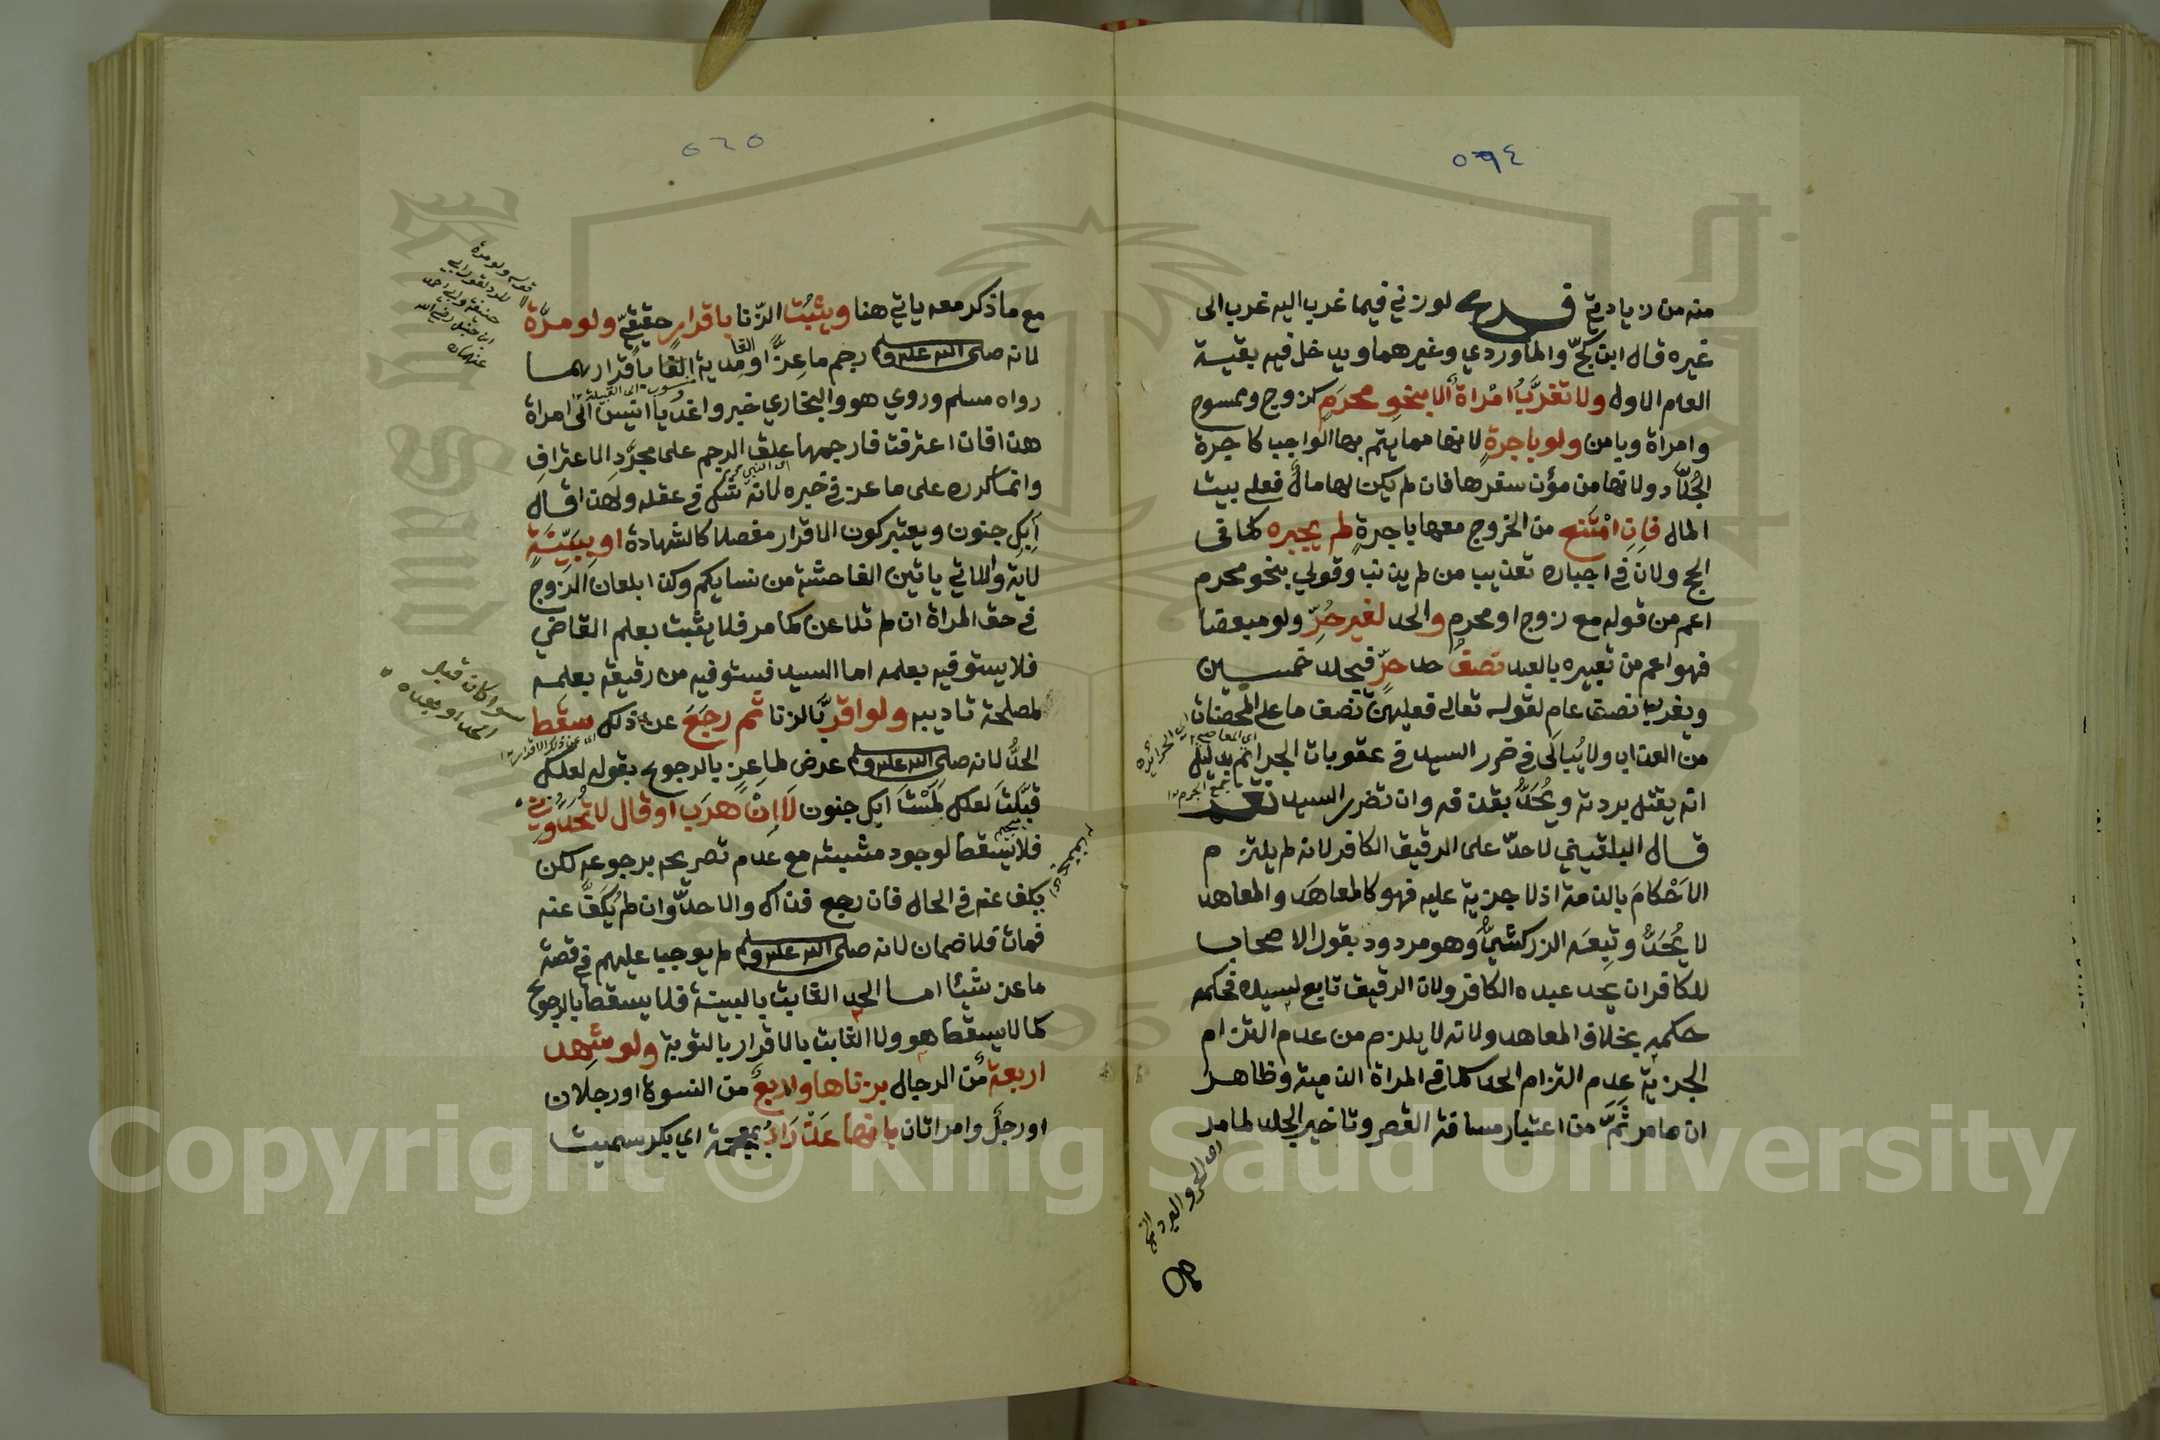 ٥٦٤
منه من زيادتي فرع لو زنى فيما غرب اليه غرب الى
غيره قال ابن كج والماوردي وغيرهما ويدخل فيه بقية
العام الاول ولا تغرَّبُ امْراة الا بنحو محرَمٍ كزوج وممسوح
وامراة ويامن ولو باجرةٍ لانها مما يتم بها الواجب كاجرة
الجلّاد ولانها من مؤن سفرها فان لم يكن لها مالٌ فعلى بيت
المال فاِنِ امْتَنع من الخروج معها باجرةٍ لم يجبره كما في
الحج ولان في اجباره تعذيب من لم يذنب وقولي بنحو محرم
اعم من قوله مع زوج او محرم والحد لغير حُرٍّ ولو مبعضا
فهو اعم من تعبيره بالعبد نصفُ حد حرٍّ فيجلد خمسين
ويغرب نصف عام لقوله تعالى فعليهن نصف ما على المحصنات
من العذاب ولا يُبالَى في ضرر السيد في عقوبات الجرائم بدليل
انه يقتل بردته ويُحَدُّ بقذفه وان تضرر السيد نعم
قال البلقيني لا حدّ على الرقيق الكافر لانه لم يلتزم
الاَحْكامَ بالذمة اذ لا جزية عليه فهو كالمعاهَد والمعاهد
لا يُحَدُّ وتبِعَه الزركشيُّ وهو مردود بقول الاصحاب
للكافر ان يحد عبده الكافر ولان الرقيق تابع لسيده فحكمه
حكمه بخلاف المعاهد ولانه لا يلزم من عدم التزام
الجزية عدم التزام الحد كما في المراة الذمية وظاهر
ان ما مر ثَمَّ من اعتبار مسافة القصر وتاخير الجلد لما مر
اي المعاصي
جمع الجرم
٥٦٥
مع ما ذكر معه ياتي هنا ويثبُت الزّنا باقرارٍ حقيقيّ ولو مرَّة
لانه صلى الله عليه وسلم رجم ماعزًا والغامدية باقرارهما
رواه مسلم وروي هو والبخاري خبر واغد يا انيس الى امراة
هذا فان اعترفت فارجمها علق الرجم على مجرَّد الاعتراف
وانما كرره على ماعز في خبره لانه شك في عقله ولهذا قال
اَبِكَ جنون ويعتبر كون الاقرار مفصلا كالشهادة او ببَيِّنَةٍ
لاية واللاتي ياتين الفاحشة من نسايكم وكذا بلعان الزوج
في حق المراة ان لم تلاعن كما مر فلا يثبت بعلم القاضي
فلا يستوفيه بعلمه اما السيد فيستوفيه من رقيقه بعلمه
لمصلحة تاديبه ولو اقرَّ بالزنا ثم رجَعَ عن ذلك سقط
الحدُّ لانه صلى الله عليه وسلم عرض لماعزٍ بالرجوع بقوله لعلك
قبَّلتَ لعلك لَمَسْتَ ابك جنون لا اِنْ هرَب او قال لا تَحُدُّوني
فلا يسقط لوجود مثبته مع عدم تصريحه برجوعه لكن
يكف عنه في الحال فان رجع فذاك والا حدَّ وان لم يُكَفَّ عنه
فمات فلا ضمان لانه صلى الله عليه وسلم لم يوجب عليهم في قصة
ماعز شيئا اما الحد الثابت بالبينة فلا يسقط بالرجوع
كما لا يسقط هو ولا الثابت بالاقرار بالتوبة ولو شهد
اربعة من الرجال بزناها واربعٌ من النسوة او رجلان
او رجلٌ وامراتان بانها عَذْرَاءُ بمعجمة اي بكر سميت
قوله ولو مرة
سواء كان قبل
الحد او بعده